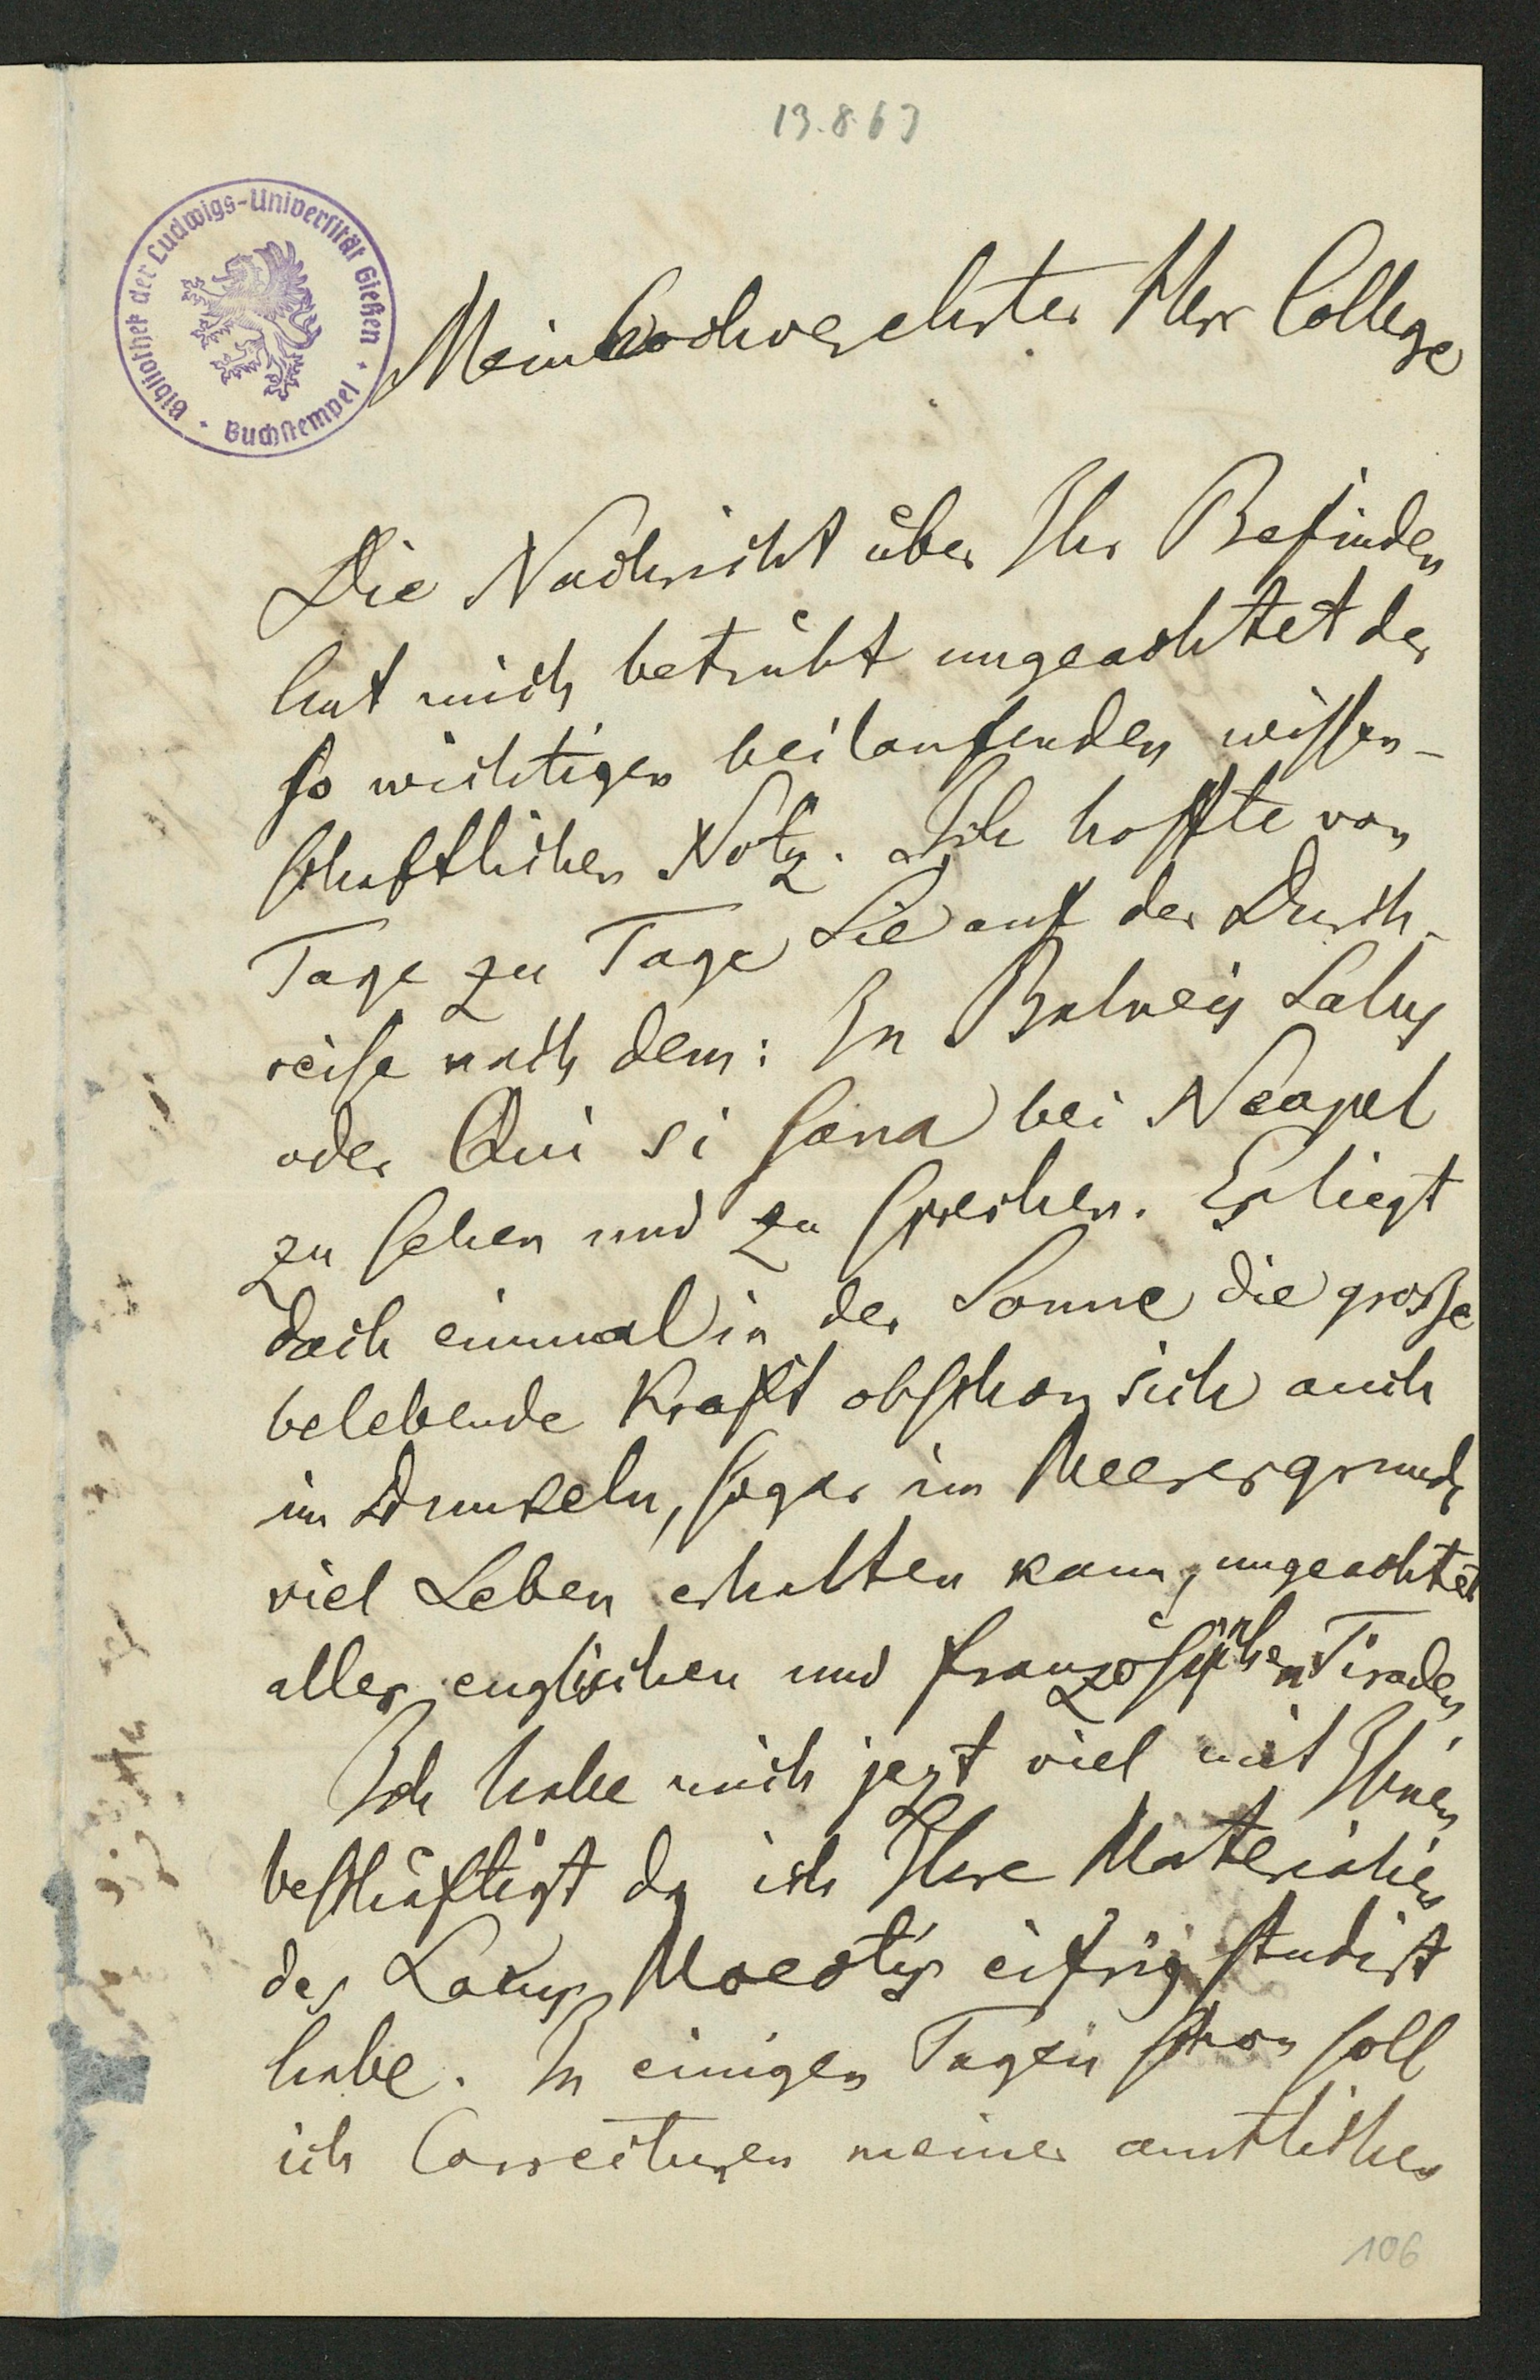 13.8.63
Bibliothek der Ludwigs-Universität Gießen
Buchstempel
Mein hochverehrter Herr College
Die Nachricht über Ihr Befinden
hat mich betrübt ungeachtet der
so wichtigen beilaufenden wissen-
schaftlichen Notiz. Ich hoffte von
Tage zu Tage Sie auf der Durch-
reise nach dem: In Balneis Salus
oder Qui si sana bei Neapel
zu sehen und zu sprechen. Es liegt
doch einmal in der Sonne die große
belebende Kraft obschon sich auch
im Dunkeln, sogar im Meeresgrunde
viel Leben erhalten kann, ungeachtet
aller englischen und französischen Tiraden.
Ich habe mich jezt viel mit Ihnen
beschäftigt da ich Ihre Materialien
des Lacus Maeotis eifrig studirt
habe. In einigen Tagen schon soll
ich Correcturen meiner amtlichen
106